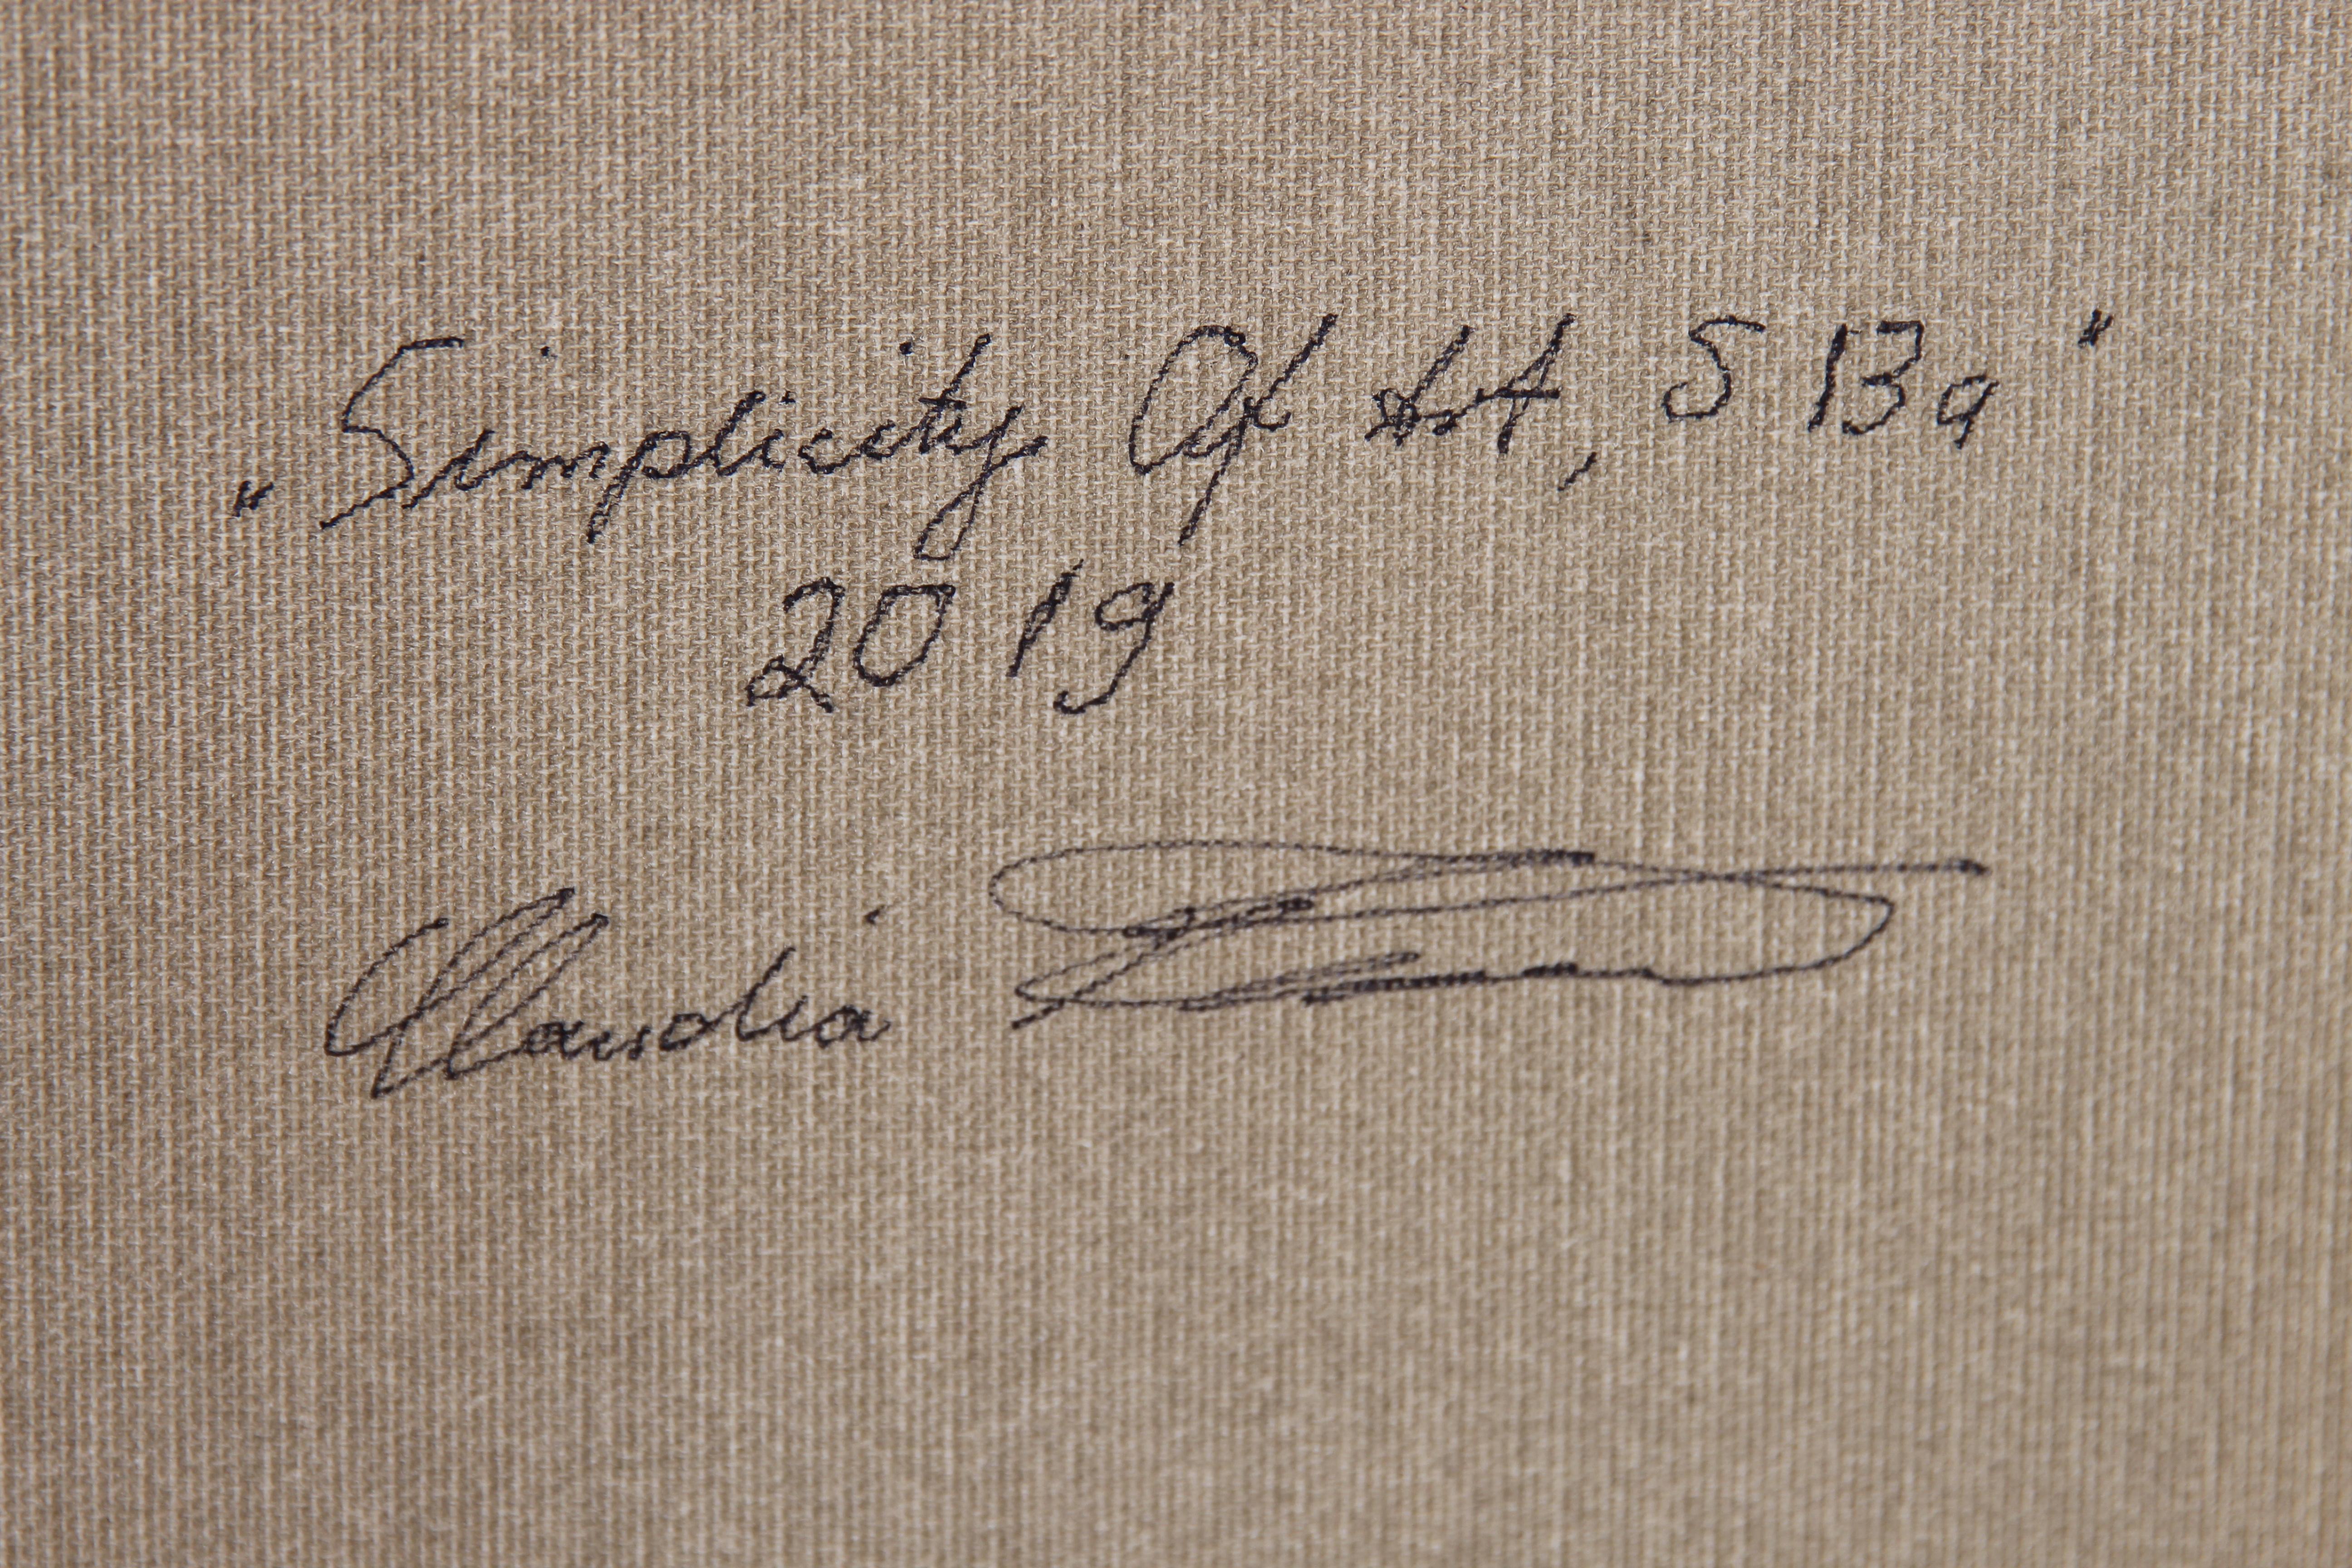 „Simplicity Of Art, S 13a“
2019
Claudia